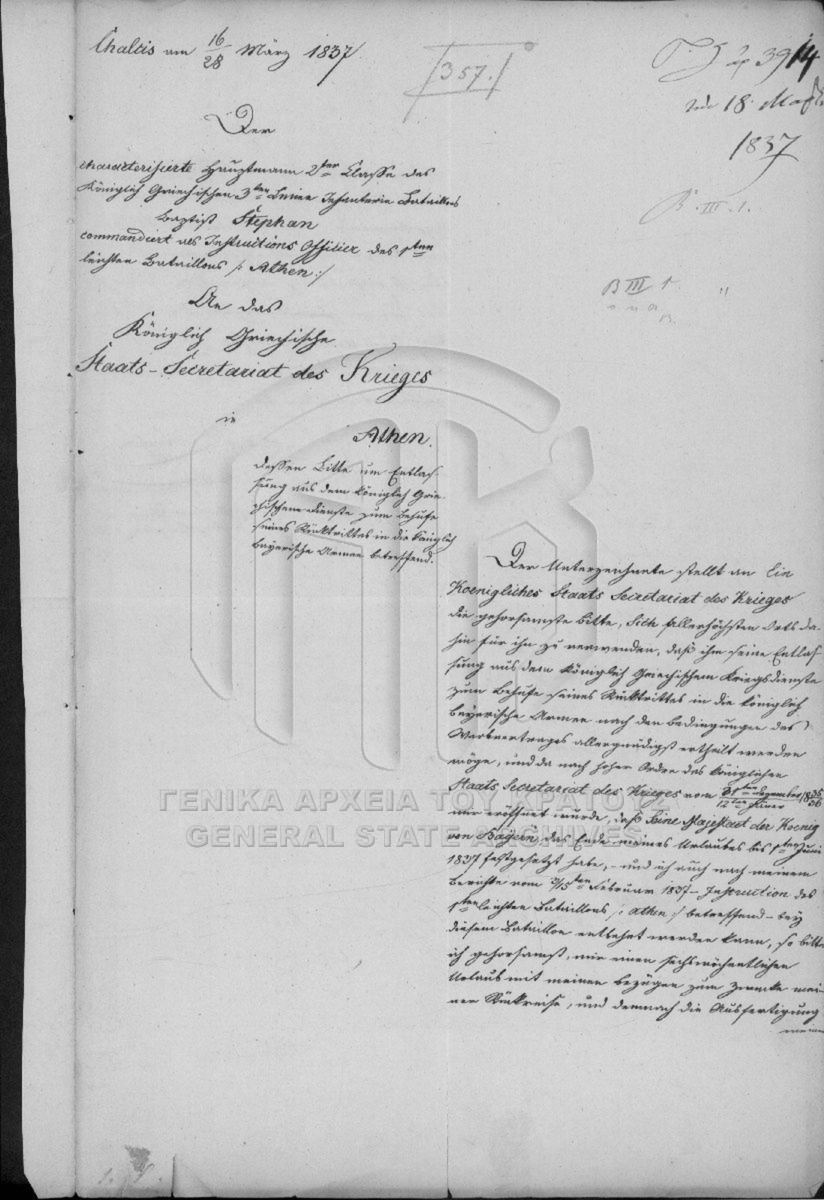 Chalcis am 16/28 März 1837.
357.
3914
18. 
1837
B. III. 1.
B III 1. "
Der
characterisirte Hauptmann 2ter Classe des
Königlich Griechischen 3ten Linien Infanterie Bataillons
Baptist Stephan
commandirt als Instructions Offizier des 1ten
leichten Bataillons /: Athen :/
An das
Königlich Griechische
Staats-Secretariat des Krieges
in
Athen.
dessen Bitte um Entlas-
sung aus dem Königlich Grie-
chischen Dienste zum Behufe
seines Rücktrittes in die Königlich
bayerische Armee betreffend.
Der Unterzeichnete stellt an Ein
Koenigliches Staats Secretariat des Krieges
die gehorsamste Bitte, Sich allerhöchsten Orts da-
hin für ihn zu verwenden, daß ihm seine Entlas-
sung aus dem Königlich Griechischen Kriegsdienste
zum Behufe seines Rücktrittes in die Königlich
bayerische Armee nach den Bedingungen des
Werbvertrages allergnädigst ertheilt werden
möge, und da nach hoher Ordre des Königlichen
Staats Secretariat des Krieges vom 31ten Dezember/12ten Jäner 1835/36
mir eröffnet wurde, daß Seine Majestaet der Koenig
von Bayern das Ende meines Urlaubes bis 1ten Juni
1837 festgesetzt habe, – und ich auch nach meinem
Berichte vom 3/15ten Februar 1837 – Instruction des
1ten leichten Bataillons /: Athen :/ betreffend – bey
diesem Bataillon entbehrt werden kann, so bitte
ich gehorsamst, mir einen sechswöchentlichen
Urlaub mit meinen Bezügen zum Zwecke mei-
ner Rückreise, und demnach die Ausfertigung
ΓΕΝΙΚΑ ΑΡΧΕΙΑ ΤΟΥ ΚΡΑΤΟΥΣ
GENERAL STATE ARCHIVES